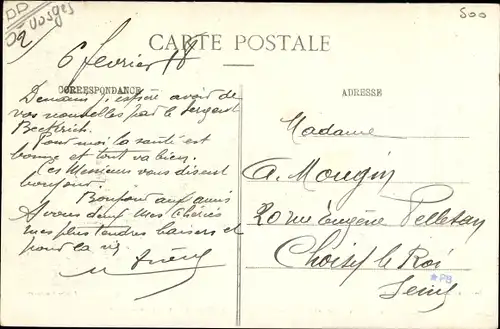 Vosges
500
6 février 18
CARTE POSTALE
CORRESPONDANCE
ADRESSE
Demain j'espère avoir de
vos nouvelles par le sergent
Beckrich.
Pour moi la santé est
bonne et tout va bien.
Ces Messieurs vous disent
bonjour.
Bonjour aux amis
A vous deux mes chéries
mes plus tendres baisers et
pour la vie
Madame
A. Mougin
20 rue Eugène Pelletan
Choisy le Roi
Seine